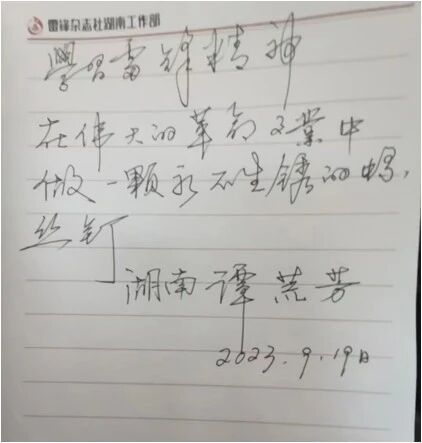 雷锋杂志社湖南工作部
學習雷锋精神
在伟大的革命事业中
做一颗永不生锈的螺
丝钉
湖南谭芳
2023.9.19日